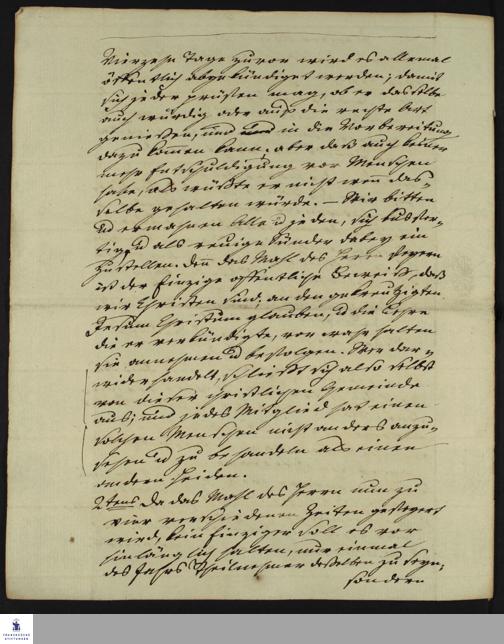 Vierzehn Tage zuvor wird es allemal
öffentlich abgekündiget werden; damit
sich jeder prüffen mag, ob er dasselbe
auch würdig oder auf die rechte Art
geniessen, und in die Vorbereitung
dazu kommen kann, aber daß auch keiner
mehr Entschuldigung vor Menschen
habe, als wüßte er nicht wenn das-
selbe gehalten würde. — Wir bitten
u ermahnen Alle u jeden, sich bußfer-
tig u als reuige Sünder dabey ein
zustellen. Denn das Mahl des Herrn feyern
ist der einzige offentliche Beweiß, daß
wir Christen sind, an den gekreutzigten
Jesum Christum glauben, u die Lehre
die er verkündigte, vor wahr halten
sie annehmen u befolgen. Wer dar-
wider handelt, schließt sich also selbst
von dieser christlichen Gemeinde
aus; und jedes Mitglied hat einen
solchen Menschen nicht anders anzu-
sehen u zu behandeln als einen
andern Heiden.
2tens Da das Mahl des Herrn nun zu
vier verschiedenen Zeiten gefeyert
wird, kein einziger soll es vor
hinlänglich halten, nur einmal
des Jahrs Theilnehmer desselben zu seyn,
sondern
FRANCKESCHE
STIFTUNGEN